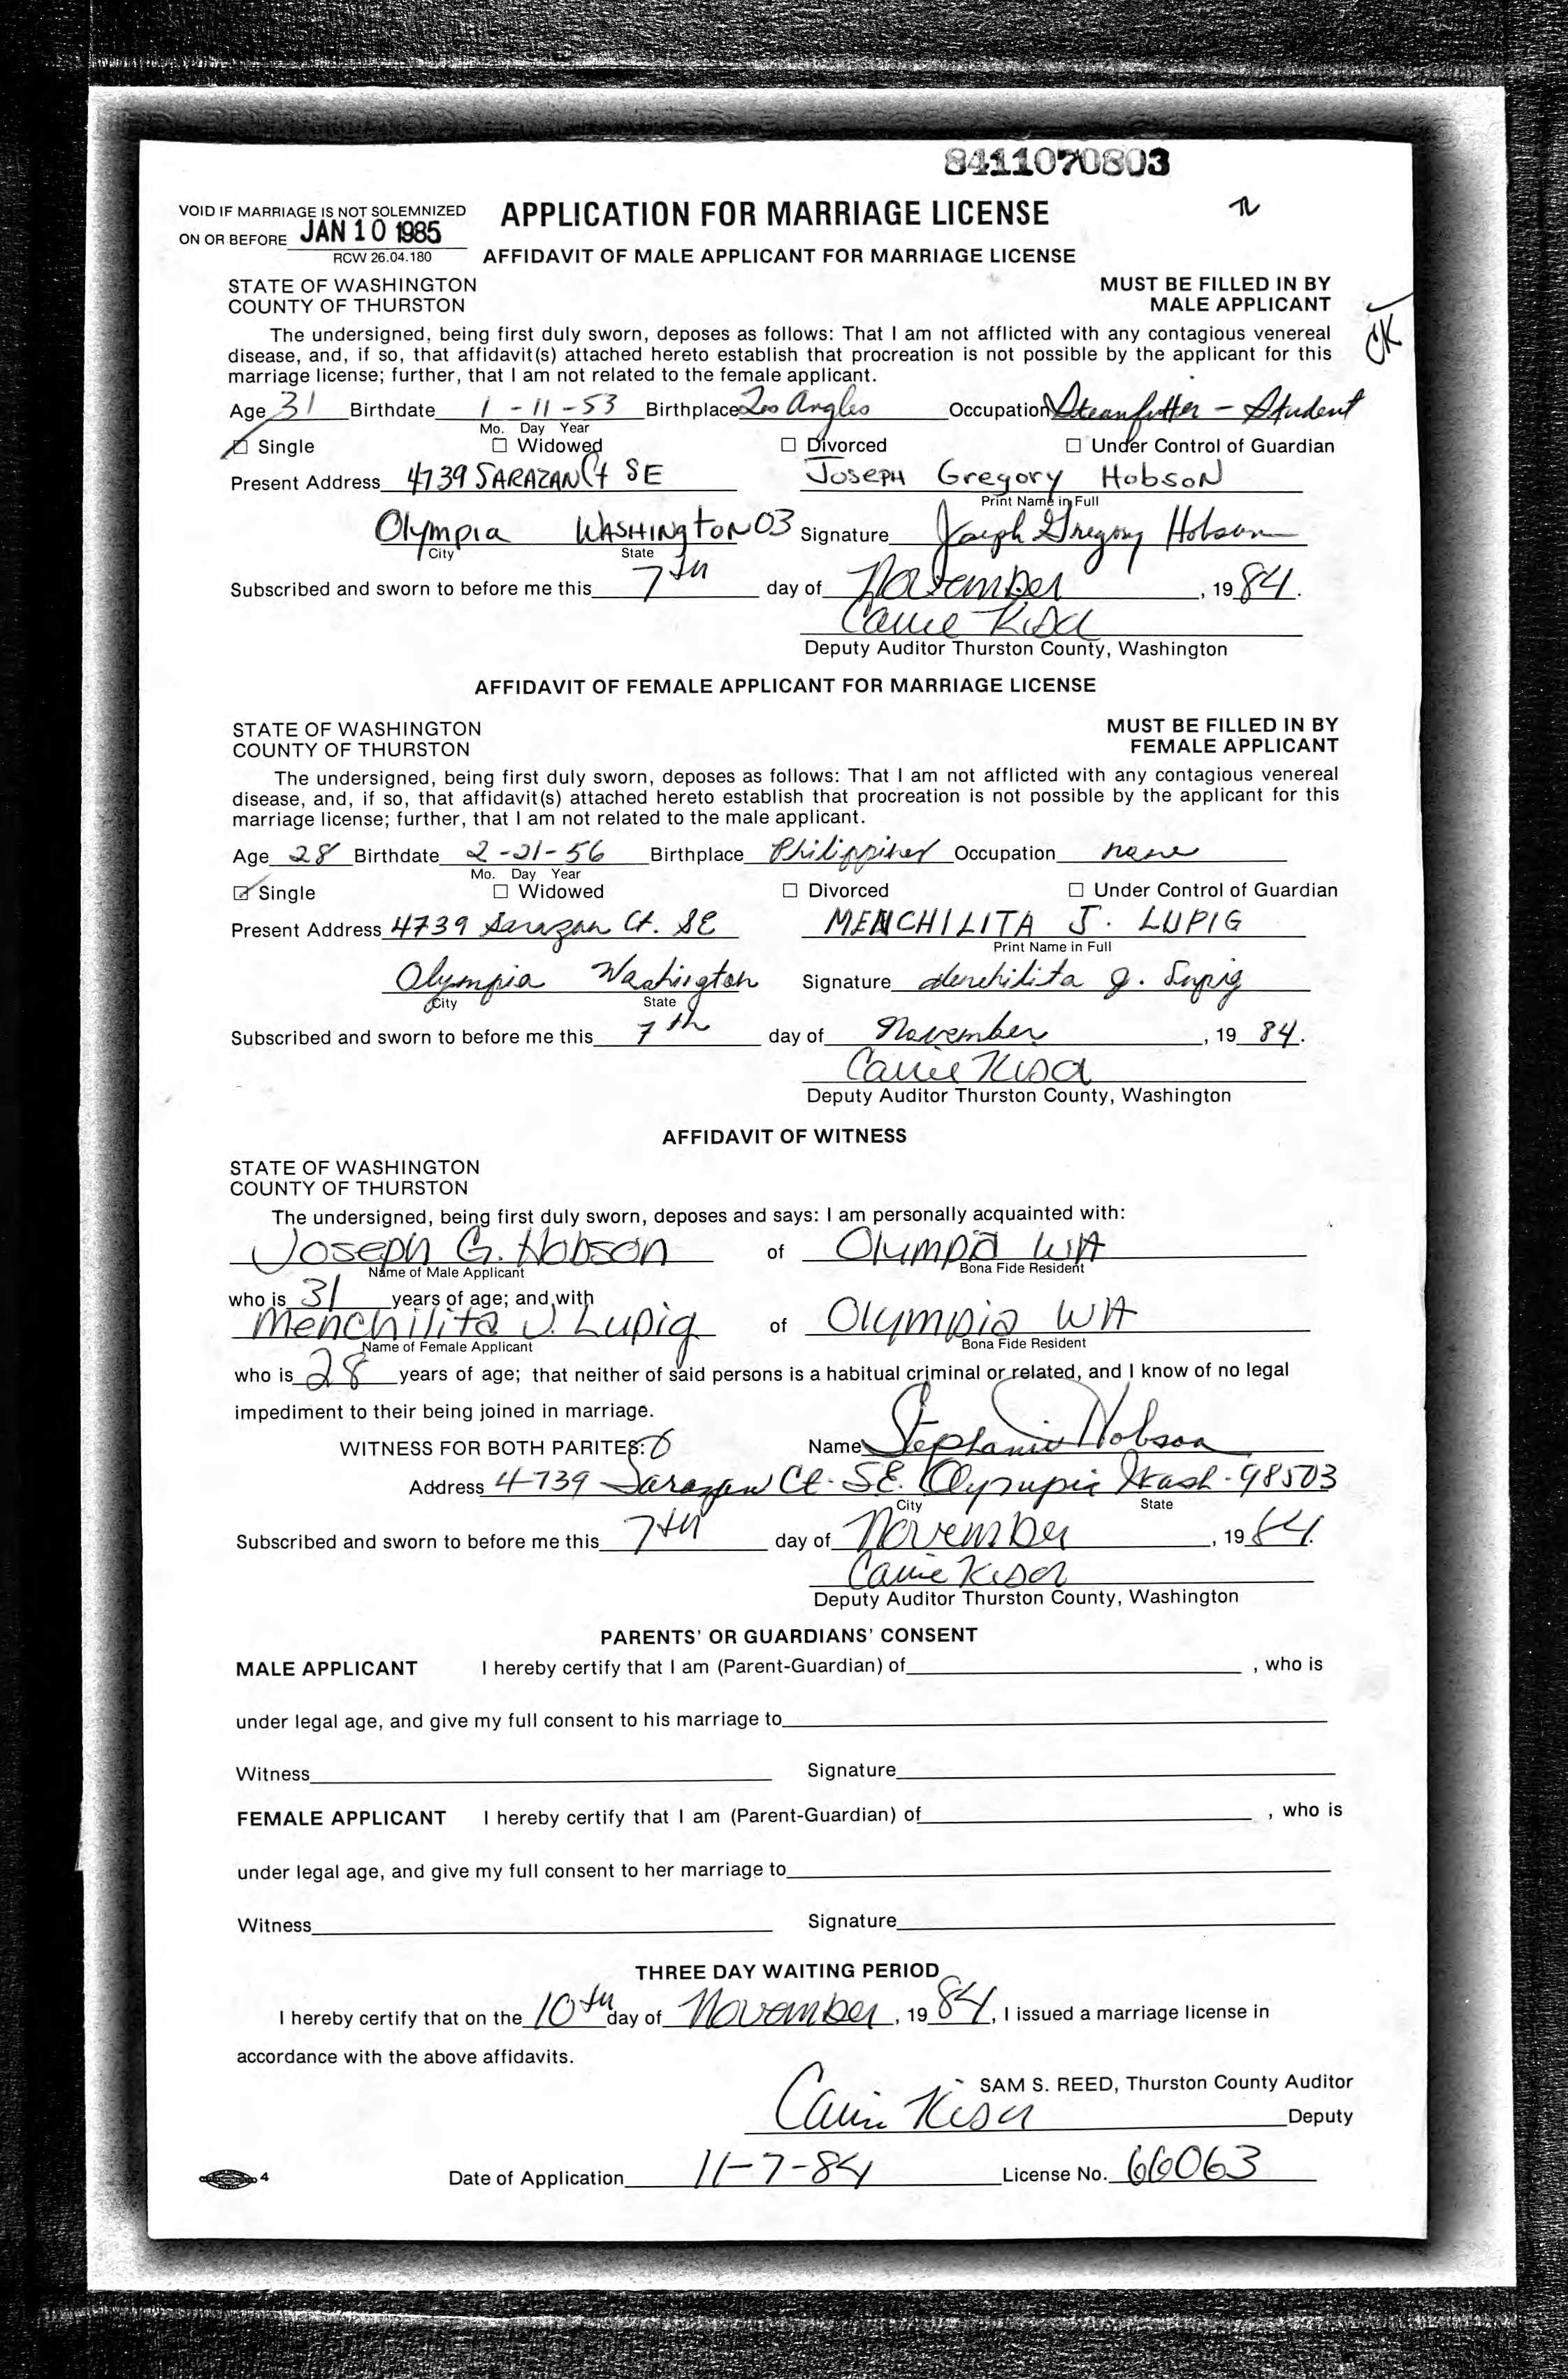 8411070803
VOID IF MARRIAGE IS NOT SOLEMNIZED
ON OR BEFORE JAN 10 1985
RCW 26.04.180
APPLICATION FOR MARRIAGE LICENSE
AFFIDAVIT OF MALE APPLICANT FOR MARRIAGE LICENSE
STATE OF WASHINGTON MUST BE FILLED IN BY
COUNTY OF THURSTON MALE APPLICANT
CK
The undersigned, being first duly sworn, deposes as follows: That I am not afflicted with any contagious venereal
disease, and, if so, that affidavit(s) attached hereto establish that procreation is not possible by the applicant for this
marriage license; further, that I am not related to the female applicant.
Age 31 Birthdate 1-11-53 Birthplace Los Angles Occupation Steamfitter - Student
Mo. Day Year
Single Widowed Divorced Under Control of Guardian
Present Address 4739 SARAZAN Ct SE Joseph Gregory Hobson
Print Name in Full
Olympia WASHINGTON 03 Signature Joseph Gregory Hobson
City State
Subscribed and sworn to before me this 7th day of November, 1984.
Carrie Kiser
Deputy Auditor Thurston County, Washington
AFFIDAVIT OF FEMALE APPLICANT FOR MARRIAGE LICENSE
STATE OF WASHINGTON MUST BE FILLED IN BY
COUNTY OF THURSTON FEMALE APPLICANT
The undersigned, being first duly sworn, deposes as follows: That I am not afflicted with any contagious venereal
disease, and, if so, that affidavit(s) attached hereto establish that procreation is not possible by the applicant for this
marriage license; further, that I am not related to the male applicant.
Age 28 Birthdate 2-21-56 Birthplace Philippines Occupation none
Mo. Day Year
Single Widowed Divorced Under Control of Guardian
Present Address 4739 Sarazan Ct. SE MENCHILITA J. LUPIG
Print Name in Full
Olympia Washington Signature Menchilita J. Lupig
City State
Subscribed and sworn to before me this 7th day of November, 1984.
Carrie Kiser
Deputy Auditor Thurston County, Washington
AFFIDAVIT OF WITNESS
STATE OF WASHINGTON
COUNTY OF THURSTON
The undersigned, being first duly sworn, deposes and says: I am personally acquainted with:
Joseph G. Hobson of Olympia WA
Name of Male Applicant Bona Fide Resident
who is 31 years of age; and with
Menchilita J. Lupig of Olympia WA
Name of Female Applicant Bona Fide Resident
who is 28 years of age; that neither of said persons is a habitual criminal or related, and I know of no legal
impediment to their being joined in marriage.
WITNESS FOR BOTH PARITES: Name Stephanie Hobson
Address 4739 Sarazan Ct. SE. Olympia Wash. 98503
City State
Subscribed and sworn to before me this 7th day of November, 1984.
Carrie Kiser
Deputy Auditor Thurston County, Washington
PARENTS' OR GUARDIANS' CONSENT
MALE APPLICANT I hereby certify that I am (Parent-Guardian) of , who is
under legal age, and give my full consent to his marriage to
Witness Signature
FEMALE APPLICANT I hereby certify that I am (Parent-Guardian) of , who is
under legal age, and give my full consent to her marriage to
Witness Signature
THREE DAY WAITING PERIOD
I hereby certify that on the 10th day of November, 1984, I issued a marriage license in
accordance with the above affidavits.
SAM S. REED, Thurston County Auditor
Carrie Kiser Deputy
4 Date of Application 11-7-84 License No. 66063